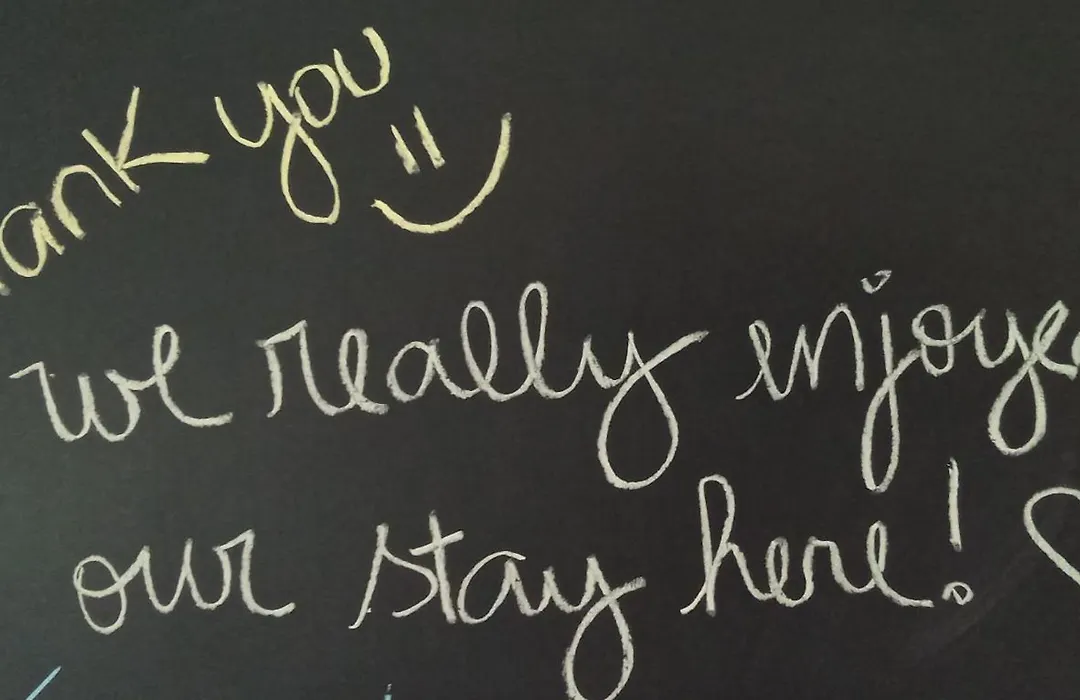 hank you
we really enjoye
our stay here!